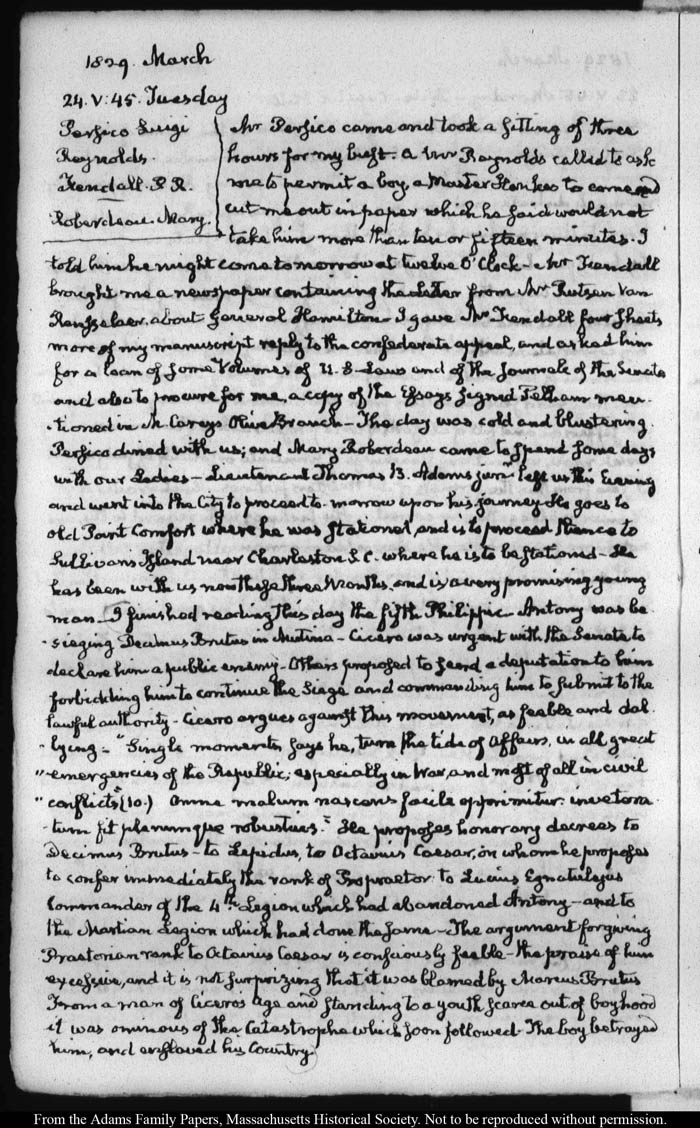 1829. March
24. V:45. Tuesday
Persico Luigi
Reynolds.
Kendall. P. R.
Roberdeau. Mary.
Mr Persico came and took a sitting of three
hours for my bust. A Mr Reynolds called to ask
me to permit a boy, a Master Hankes to come and
cut me out in paper which he said would not
take him more than ten or fifteen minutes. I
told him he might come to morrow at twelve O'Clock — Mr Kendall
brought me a newspaper containing the Letter from Mr Rutsen Van
Rensselaer, about General Hamilton — I gave Mr Kendall four sheets
more of my manuscript reply to the confederate appeal, and asked him
for a loan of some Volumes of U. S. Laws and of the Journals of the Senate
and also to procure for me, a copy of the Essays signed Pelham men-
-tioned in M. Careys Olive Branch — The day was cold and blustering.
Persico dined with us; and Mary Roberdeau came to spend some days
with our Ladies — Lieutenant Thomas B. Adams junr left us this Evening
and went into the City to proceed to-morrow upon his journey. He goes to
old Point Comfort where he was stationed, and is to proceed thence to
Sullivan's Island near Charleston S. C. where he is to be stationed — He
has been with us now these three Months, and is a very promising young
man — I finished reading this day the fifth Philippic — Antony was be-
-sieging Decimus Brutus in Mutina — Cicero was urgent with the Senate to
declare him a public enemy — Others proposed to send a deputation to him
forbidding him to continue the Siege and commanding him to submit to the
lawful authority — Cicero argues against this movement, as feeble and dal-
-lying — "Single moments, says he, turn the tide of Affairs, in all great
"emergencies of the Republic; especially in War, and most of all in civil
"conflicts" (10.) Omne malum nascens facile opprimitur: invetera-
-tum fit plerumque robustius." He proposes honorary decrees to
Decimus Brutus — to Lepidus, to Octavius Caesar, on whom he proposes
to confer immediately the rank of Propraetor: to Lucius Egnatulejus
Commander of the 4th Legion which had abandoned Antony — and to
the Martian Legion which had done the same — The argument for giving
Praetorian rank to Octavius Caesar is consciously feeble — the praise of him
excessive, and it is not surprizing that it was blamed by Marcus Brutus
From a man of Cicero's age and standing to a youth scarce out of boyhood
it was ominous of the Catastrophe which soon followed. The boy betrayed
him, and enslaved his Country.
From the Adams Family Papers, Massachusetts Historical Society. Not to be reproduced without permission.